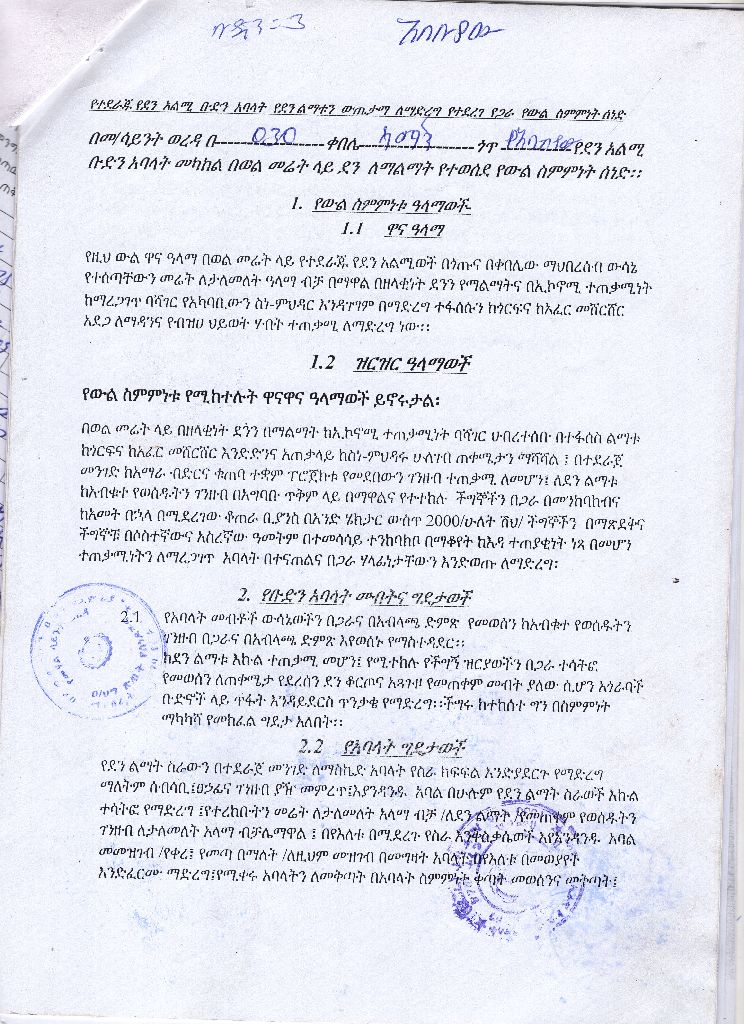 የተደራጁ የደን አልሚ ቡድን አባላት የደን ልማቱን ውጤታማ ለማድረግ የተደረገ የጋራ የውል ስምምነት ሰነድ
በመ/ሳይንት ወረዳ በ 030 ቀበሌ ጎጥ የደን አልሚ
ቡድን አባላት መካከል በወል መሬት ላይ ደን ለማልማት የተወሰደ የውል ስምምነት ሰነድ፡፡
1. የውል ስምምነቱ ዓላማወች
1.1 ዋና ዓላማ
የዚህ ውል ዋና ዓላማ በወል መሬት ላይ የተደራጁ የደን አልሚወች በጎጡና በቀበሌው ማህበረሰብ ውሳኔ
የተሰጣቸውን መሬት ለታለመለት ዓላማ ብቻ በማዋል በዘላቂነት ደንን የማልማትና በኢኮኖሚ ተጠቃሚነት
ከማረጋገጥ ባሻገር የአካባቢውን ስነ-ምህዳር እንዳጥግም በማድረግ ተፋሰሱን ከጎርፍና ከአፈር መሸርሸር
አደጋ ለማዳንና የብዝሀ ህይወት ሃብት ተጠቃሚ ለማድረግ ነው፡፡
1.2 ዝርዝር ዓላማወች
የውል ስምምነቱ የሚከተሉት ዋናዋና ዓላማወች ይኖሩታል፡
በወል መሬት ላይ በዘላቂነት ደንን በማልማት ከኢኮኖሚ ተጠቃሚነት ባሻገር ህብረተሰቡ በተፋሰስ ልማቱ
ከጎርፍና ከአፈር መሸርሸር እንድድንና አጠቃላይ ከስነ-ምህዳሩ ሁለገብ ጠቀሜታን ማሻሻል ፤ በተደራጀ
መንገድ ከአማራ ብድርና ቁጠባ ተቋም ፕሮጀክቱ የመደበውን ገንዘብ ተጠቃሚ ለመሆን፤ ለደን ልማቱ
ከአብቁተ የወሰዱትን ገንዘብ በአግባቡ ጥቅም ላይ በማዋልና የተተከሉ ችግኞችን በጋራ በመንከባከብና
ከአመት በኋላ በሚደረገው ቆጠራ ቢያንስ በአንድ ሄክታር ውስጥ 2000/ሁለት ሽህ/ ችግኞችን በማጽደቅና
ችግኞቹ በሶስተኛውና አስረኛው ዓመትም በተመሳሳይ ተንከባክቦ በማቆየት ከእዳ ተጠያቂነት ነጻ በመሆን
ተጠቃሚነትን ለማረጋገጥ አባላት በተናጠልና በጋራ ሃላፊነታቸውን እንድወጡ ለማድረግ፡
2. የቡድን አባላት መብትና ግዴታወች
2.1 የአባላት መብቶች ውሳኔወችን በጋራና በአብላጫ ድምጽ የመወሰን ከአብቁተ የወሰዱትን
ገንዘብ በጋራና በአብላጫ ድምጽ እየወሰኑ የማስተዳደር፡፡
ከደን ልማቱ እኩል ተጠቃሚ መሆን፤ የሚተከሉ የችግኝ ዝርያወችን በጋራ ተሳትፎ
የመወሰን ለጠቀሜታ የደረሰን ደን ቆርጦና አጓጉዞ የመጠቀም መብት ያለው ሲሆን አጎራባች
ቡድኖች ላይ ጥፋት እንዳይደርስ ጥንቃቄ የማድረግ፡፡ችግሩ ከተከሰተ ግን በስምምነት
ማካካሻ የመክፈል ግዴታ አለበት፡፡
2.2 የአባላት ግዴታወች
የደን ልማት ስራውን በተደራጀ መንገድ ለማስኬድ አባላት የስራ ክፍፍል እንድያደርጉ የማድረግ
ማለትም ሰብሳቢ፤ፀኃፊና ገንዘብ ያዥ መምረጥ፤እያንዳንዱ አባል በሁሉም የደን ልማት ስራወች እኩል
ተሳትፎ የማድረግ ፤የተረከቡትን መሬት ለታለመለት አላማ ብቻ /ለደን ልማት /የመጠቀም የወሰዱትን
ገንዘብ ለታለመለት አላማ ብቻ ፤ በየእለቱ በሚደረጉ የስራ እንቅስቃሴወች እያንዳንዱ አባል
መመዝገብ /የቀረ፤ የመጣ በማለት /ለዚህም መዝገብ በመግዛት አባላት በየእለቱ በመወያየት
እንድፈርሙ ማድረግ፤የሚቀሩ አባላትን ለመቅጣት በአባላት ስምምነት ቅጣት መወሰንና መቅጣት፤